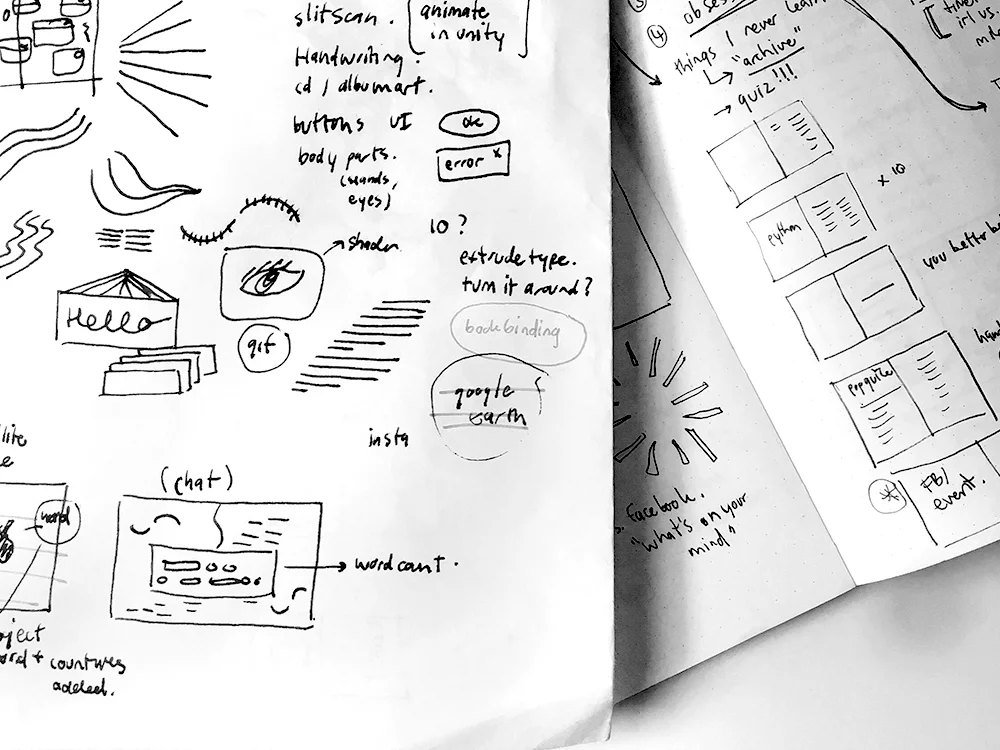 slitscan.
animate
in unity
Handwriting.
cd / albumart.
buttons UI
ok
body parts.
error x
(hands,
eyes)
10?
shader
extrude type.
turn it around?
Hello
bookbinding
gif
google
earth
insta
(chat)
word
wordcount.
oject
word + countries
added.
4
things I never learn
"archive"
quiz!!!
x 10
python
you better be
popquiz
FB/
event.
*
facebook.
"what's on your
mind"
irl vs.